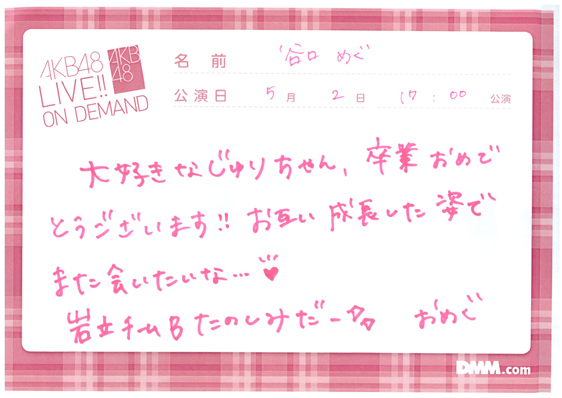 AKB48
LIVE!!
ON DEMAND
AKB
48
名前 谷口 めぐ
公演日 5月 2日 17:00 公演
大好きなじゅりちゃん、卒業おめで
とうございます!! お互い成長した姿で
また会いたいな…♥
岩立チームB たのしみだー☆☆ おめぐ
DMM.com